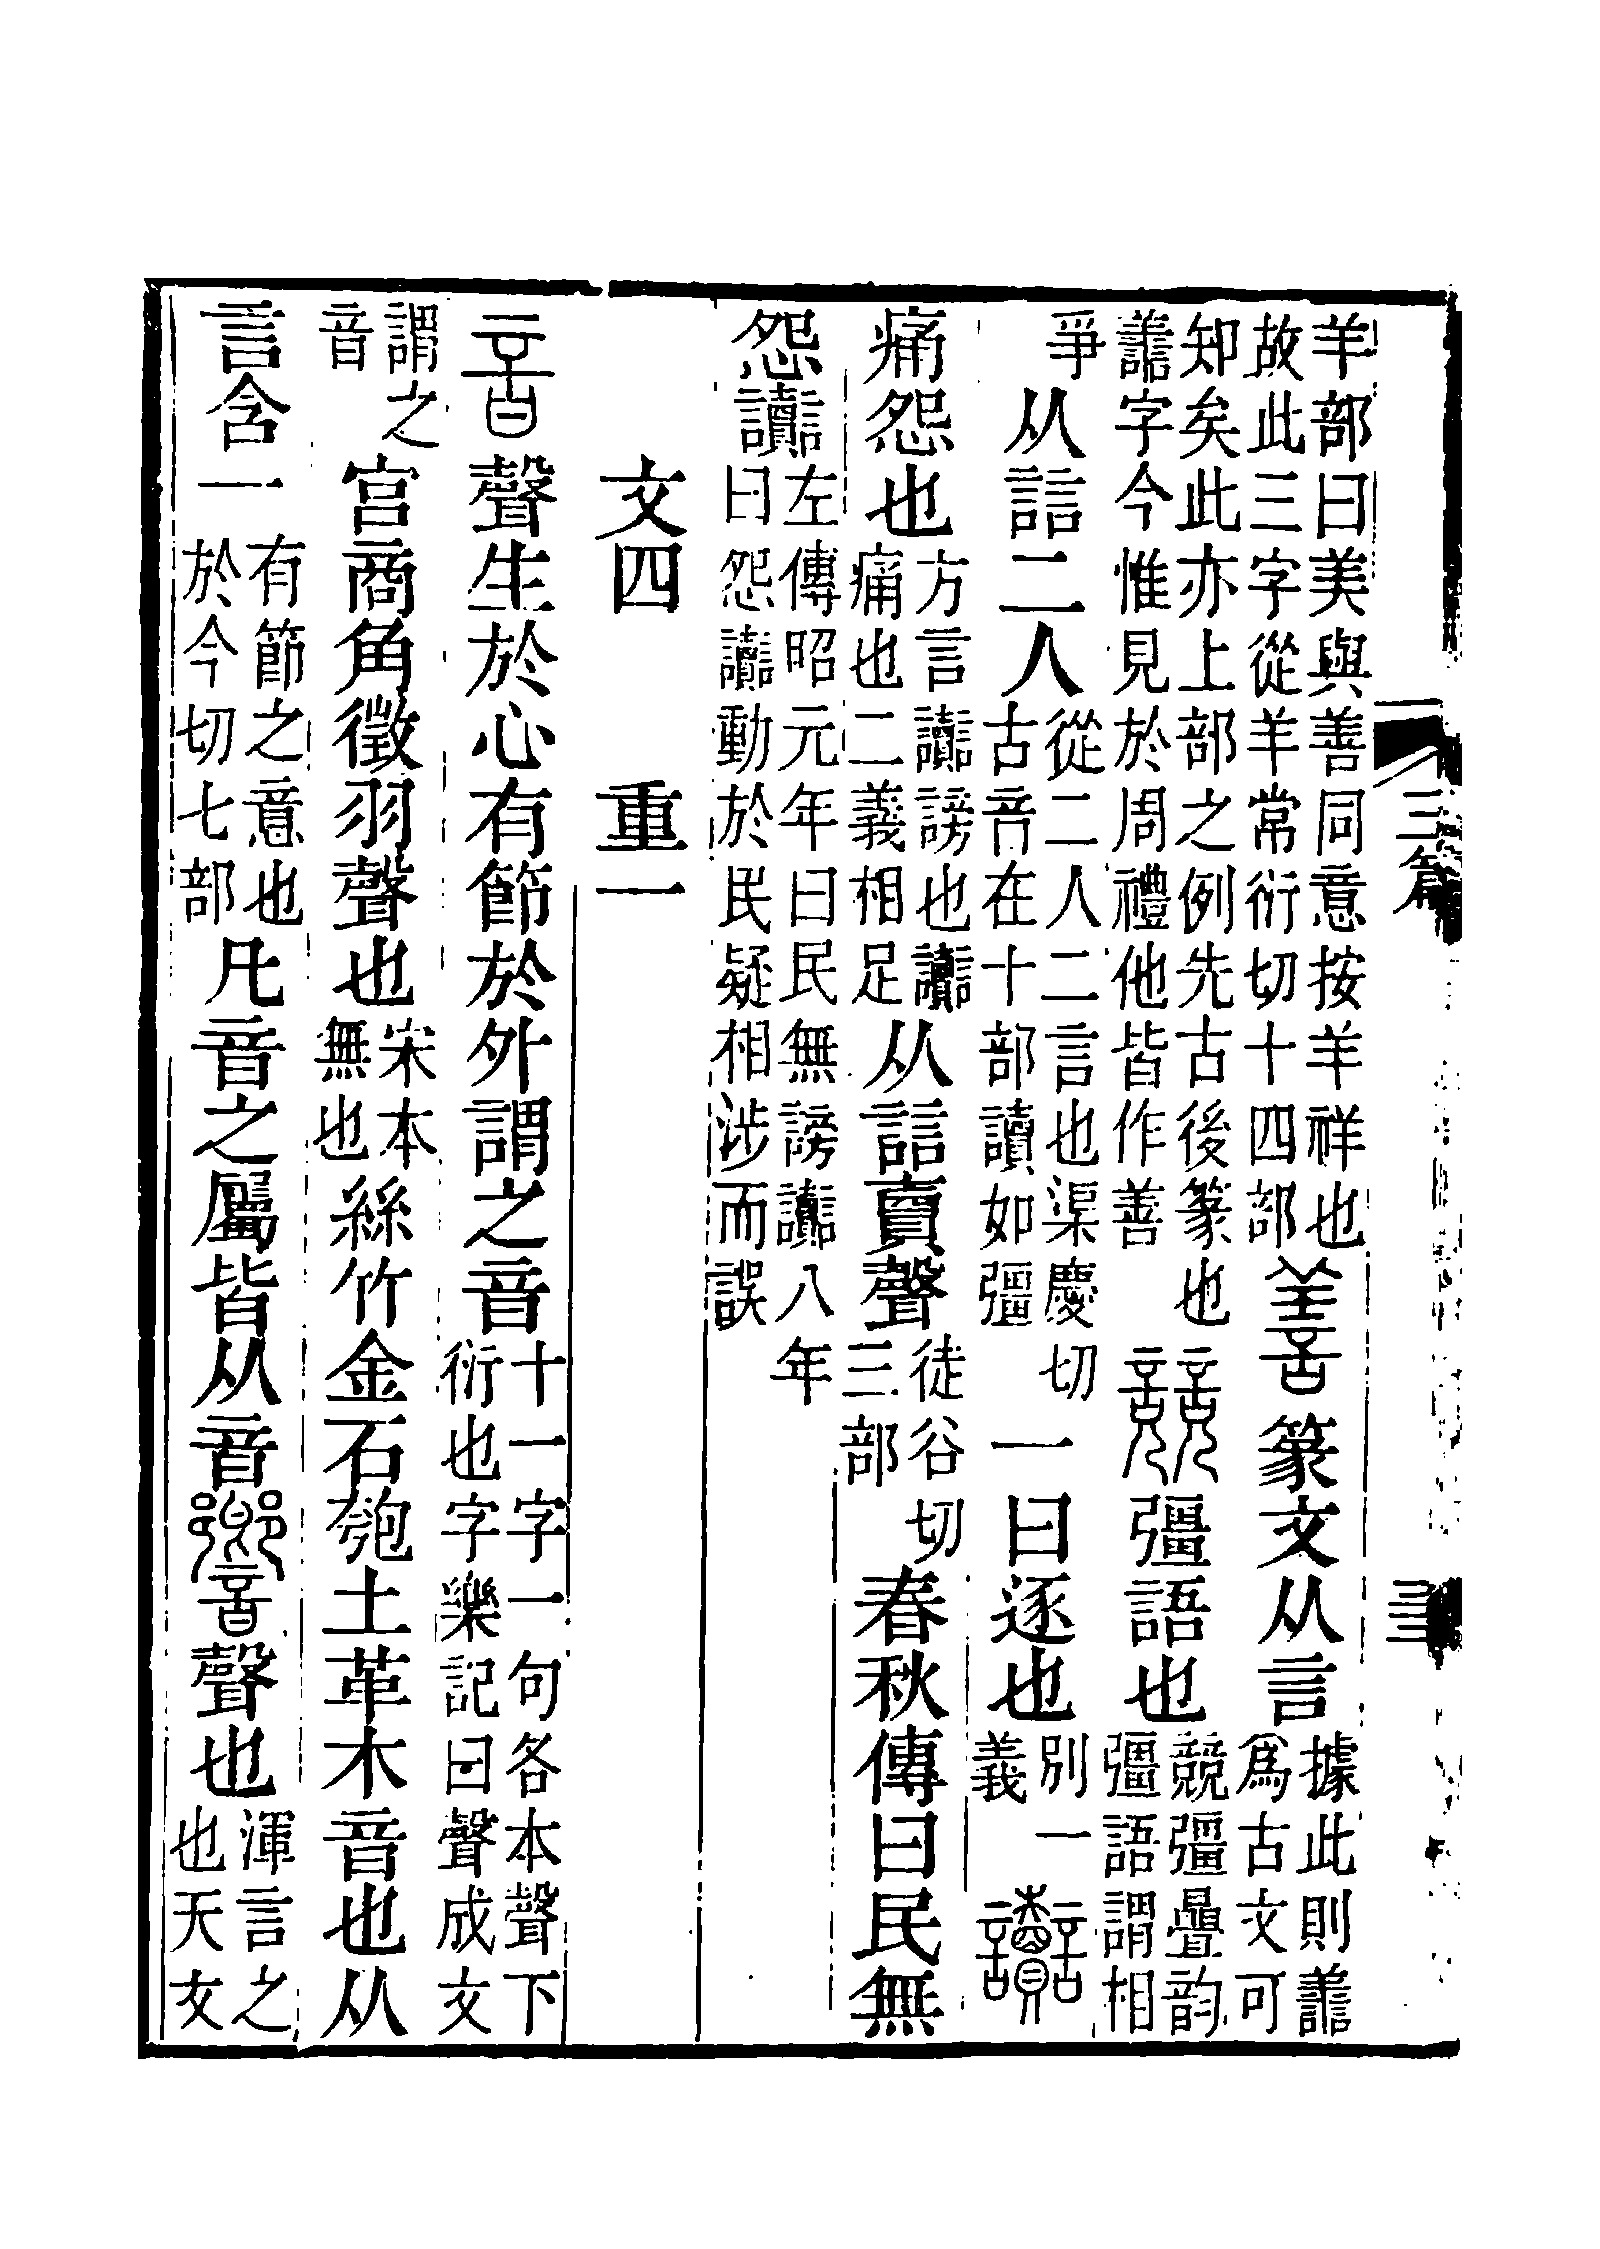 羊部曰美與善同意按羊祥也故此三字從羊常衍切十四部善篆文从言據此則譱爲古文可
知矣此亦上部之例先古後篆也譱字今惟見於周禮他皆作善競彊語也競彊曡韵彊語謂相
爭从誩二人從二人二言也渠慶切古音在十部讀如彊一曰逐也別一義讟
痛怨也方言讟謗也讟痛也二義相足从誩𧶠聲徒谷切三部春秋傳曰民無
怨讟左傳昭元年曰民無謗讟八年曰怨讟動於民疑相涉而誤
文四　重一
音聲生於心有節於外謂之音十一字一句各本聲下衍也字樂記曰聲成文
謂之音宮商角徵羽聲也宋本無也絲竹金石匏土革木音也从
言含一有節之意也於今切七部凡音之屬皆从音響聲也渾言之也天女
三篇